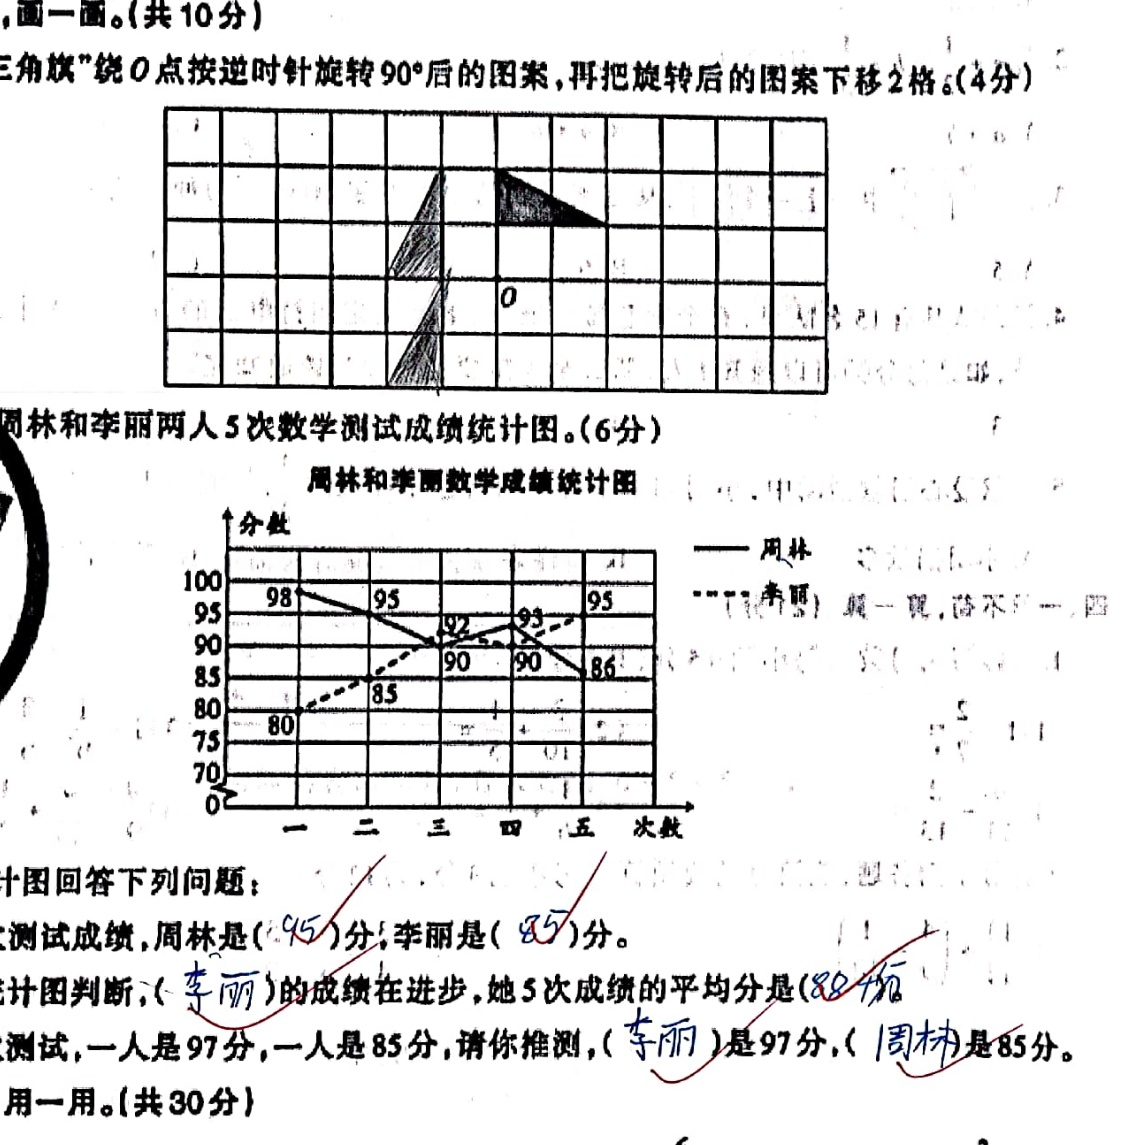 ,画一画。(共10分)
三角旗”绕O点按逆时针旋转90°后的图案,再把旋转后的图案下移2格。(4分)
O
周林和李丽两人5次数学测试成绩统计图。(6分)
周林和李丽数学成绩统计图
分数
周林
李丽
100
95
90
85
80
75
70
0
98
95
92
93
95
90
90
86
85
80
一 二 三 四 五 次数
计图回答下列问题:
测试成绩,周林是(95)分,李丽是(85)分。
计图判断,(李丽)的成绩在进步,她5次成绩的平均分是(88.4
测试,一人是97分,一人是85分,请你推测,(李丽)是97分,(周林)是85分。
用一用。(共30分)